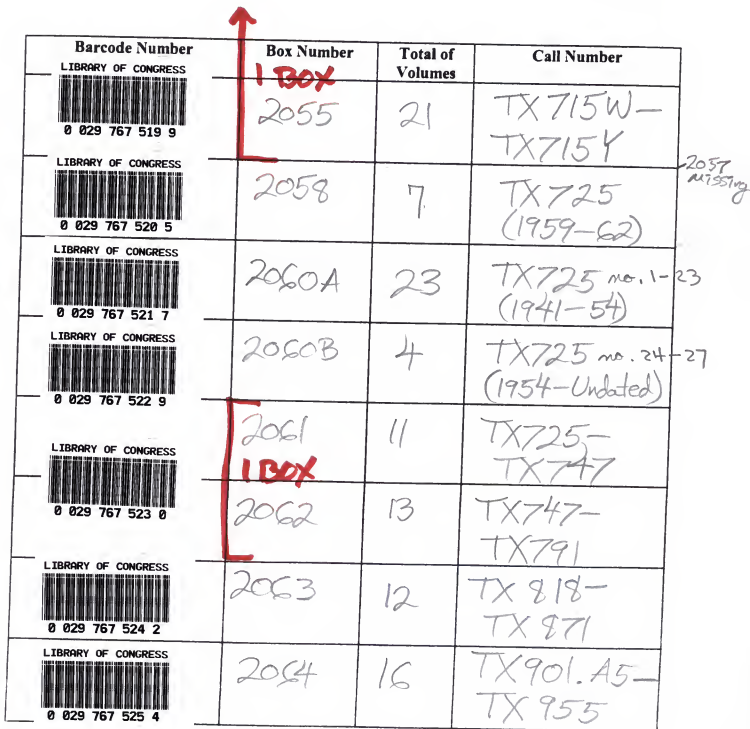 Barcode Number Box Number Total of Volumes Call Number
LIBRARY OF CONGRESS
0 029 767 519 9
1 BOX
2055 21 TX715W–
TX715Y
2057
missing
LIBRARY OF CONGRESS
0 029 767 520 5
2058 7 TX725
(1959–62)
LIBRARY OF CONGRESS
0 029 767 521 7
2060A 23 TX725 no. 1–23
(1941–54)
LIBRARY OF CONGRESS
0 029 767 522 9
2060B 4 TX725 no. 24–27
(1954–Undated)
LIBRARY OF CONGRESS
0 029 767 523 0
2061 11 TX725–
TX747
1 BOX
2062 13 TX747–
TX791
LIBRARY OF CONGRESS
0 029 767 524 2
2063 12 TX 818–
TX 871
LIBRARY OF CONGRESS
0 029 767 525 4
2064 16 TX901.A5–
TX 955